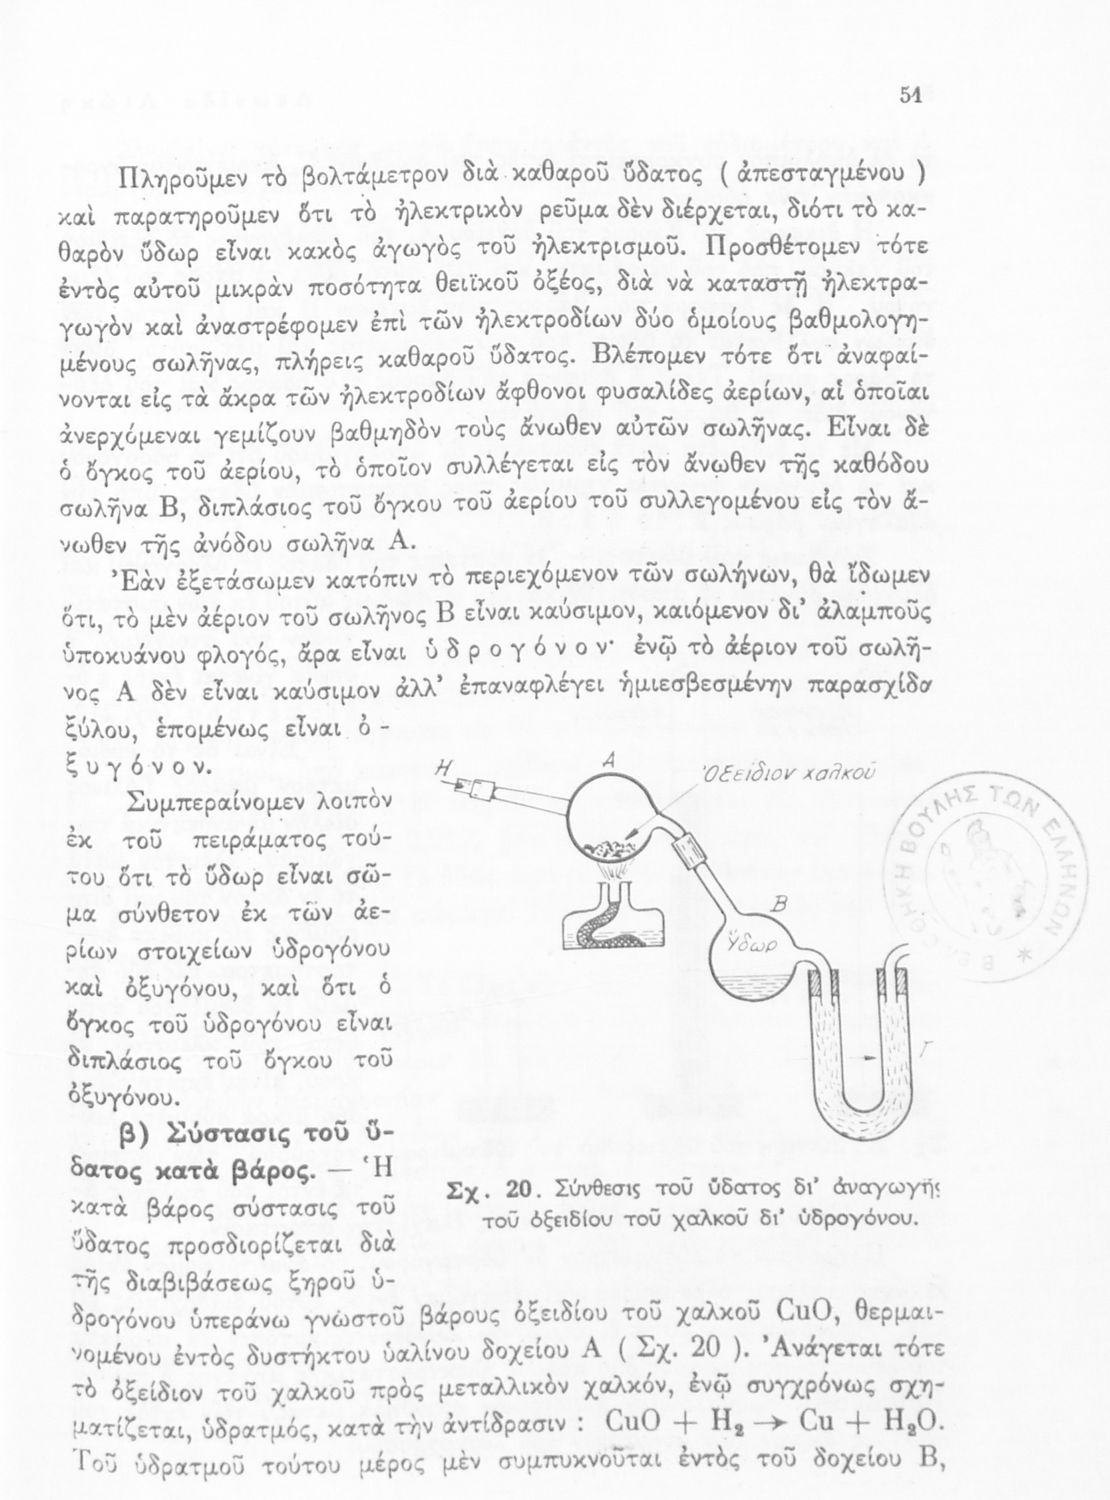 51
Πληροῦμεν τὸ βολτάμετρον διὰ καθαροῦ ὕδατος ( ἀπεσταγμένου )
καὶ παρατηροῦμεν ὅτι τὸ ἠλεκτρικὸν ρεῦμα δὲν διέρχεται, διότι τὸ κα-
θαρὸν ὕδωρ εἶναι κακὸς ἀγωγὸς τοῦ ἠλεκτρισμοῦ. Προσθέτομεν τότε
ἐντὸς αὐτοῦ μικρὰν ποσότητα θειϊκοῦ ὀξέος, διὰ νὰ καταστῇ ἠλεκτρα-
γωγὸν καὶ ἀναστρέφομεν ἐπὶ τῶν ἠλεκτροδίων δύο ὁμοίους βαθμολογη-
μένους σωλῆνας, πλήρεις καθαροῦ ὕδατος. Βλέπομεν τότε ὅτι ἀναφαί-
νονται εἰς τὰ ἄκρα τῶν ἠλεκτροδίων ἄφθονοι φυσαλίδες ἀερίων, αἱ ὁποῖαι
ἀνερχόμεναι γεμίζουν βαθμηδὸν τοὺς ἄνωθεν αὐτῶν σωλῆνας. Εἶναι δὲ
ὁ ὄγκος τοῦ ἀερίου, τὸ ὁποῖον συλλέγεται εἰς τὸν ἄνωθεν τῆς καθόδου
σωλῆνα Β, διπλάσιος τοῦ ὄγκου τοῦ ἀερίου τοῦ συλλεγομένου εἰς τὸν ἄ-
νωθεν τῆς ἀνόδου σωλῆνα Α.
Ἐὰν ἐξετάσωμεν κατόπιν τὸ περιεχόμενον τῶν σωλήνων, θὰ ἴδωμεν
ὅτι, τὸ μὲν ἀέριον τοῦ σωλῆνος Β εἶναι καύσιμον, καιόμενον δι’ ἀλαμποῦς
ὑποκυάνου φλογός, ἄρα εἶναι ὑ δ ρ ο γ ό ν ο ν· ἐνῷ τὸ ἀέριον τοῦ σωλῆ-
νος Α δὲν εἶναι καύσιμον ἀλλ’ ἐπαναφλέγει ἡμιεσβεσμένην παρασχίδα
ξύλου, ἑπομένως εἶναι ὀ -
ξ υ γ ό ν ο ν.
Συμπεραίνομεν λοιπὸν
ἐκ τοῦ πειράματος τού-
του ὅτι τὸ ὕδωρ εἶναι σῶ-
μα σύνθετον ἐκ τῶν ἀε-
ρίων στοιχείων ὑδρογόνου
καὶ ὀξυγόνου, καὶ ὅτι ὁ
ὄγκος τοῦ ὑδρογόνου εἶναι
διπλάσιος τοῦ ὄγκου τοῦ
ὀξυγόνου.
β) Σύστασις τοῦ ὕ-
δατος κατὰ βάρος. — Ἡ
κατὰ βάρος σύστασις τοῦ
ὕδατος προσδιορίζεται διὰ
τῆς διαβιβάσεως ξηροῦ ὑ-
δρογόνου ὑπεράνω γνωστοῦ βάρους ὀξειδίου τοῦ χαλκοῦ CuO, θερμαι-
νομένου ἐντὸς δυστήκτου ὑαλίνου δοχείου Α ( Σχ. 20 ). Ἀνάγεται τότε
τὸ ὀξείδιον τοῦ χαλκοῦ πρὸς μεταλλικὸν χαλκόν, ἐνῷ συγχρόνως σχη-
ματίζεται, ὑδρατμός, κατὰ τὴν ἀντίδρασιν : CuO + H₂ → Cu + H₂O.
Τοῦ ὑδρατμοῦ τούτου μέρος μὲν συμπυκνοῦται ἐντὸς τοῦ δοχείου Β,
H
A
Ὀξείδιον χαλκοῦ
B
Ὕδωρ
Γ
Σχ. 20. Σύνθεσις τοῦ ὕδατος δι’ ἀναγωγῆς
τοῦ ὀξειδίου τοῦ χαλκοῦ δι’ ὑδρογόνου.
ΒΟΥΛΗΣ ΤΩΝ ΕΛΛΗΝΩΝ